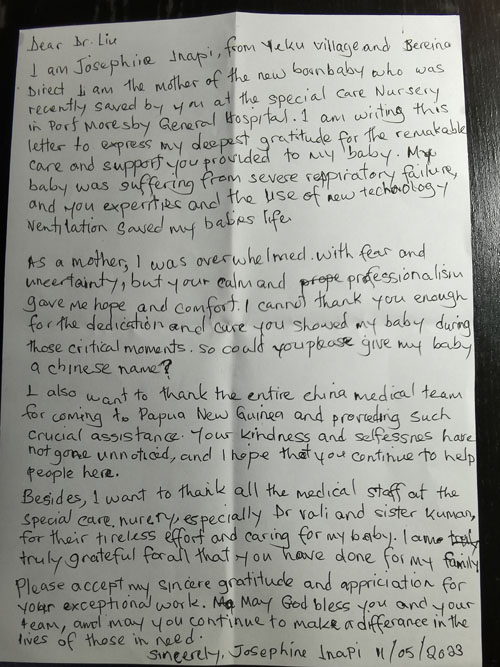 Dear Dr. Liu
I am Josephine Inapi, from Yeku village and Bereina
Direct I am the mother of the new bornbaby who was
recently saved by you at the special care Nursery
in Port Moresby General Hospital. I am writing this
letter to express my deepest gratitude for the remakable
care and support you provided to my baby. My
baby was suffering from severe reppiratory failure,
and you experties and the use of new technology
Ventilation saved my babies life.
As a mother, I was overwhelmed with fear and
uncertainty, but your calm and professionalism
gave me hope and comfort. I cannot thank you enough
for the dedication and care you showed my baby during
those critical moments. so could you please give my baby
a chinese name?
I also want to thank the entire china medical team
for coming to Papua New Guinea and provading such
crucial assistance. Your kindness and selfessnes have
not gone unnoticed, and I hope that you continue to help
people here.
Besides, I want to thank all the medical staff at the
special care nurery, especially Dr Vali and sister Kuman,
for their tireless effort and caring for my baby. I am
truly grateful for all that you have done for my family
Please accept my sincere gratitude and appriciation for
your exceptional work. May God bless you and your
team, and may you continue to make a differance in the
lives of those in need.
Sincerely, Josephine Inapi 11/05/2023